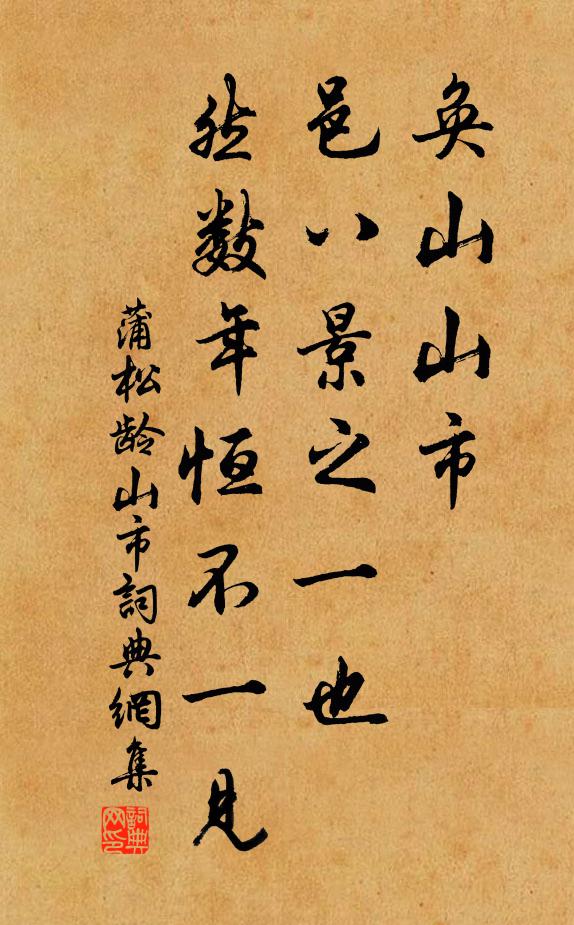 奂山山市
邑八景之一也
然数年恒不一见
蒲松龄山市詞典網集
詞典網印